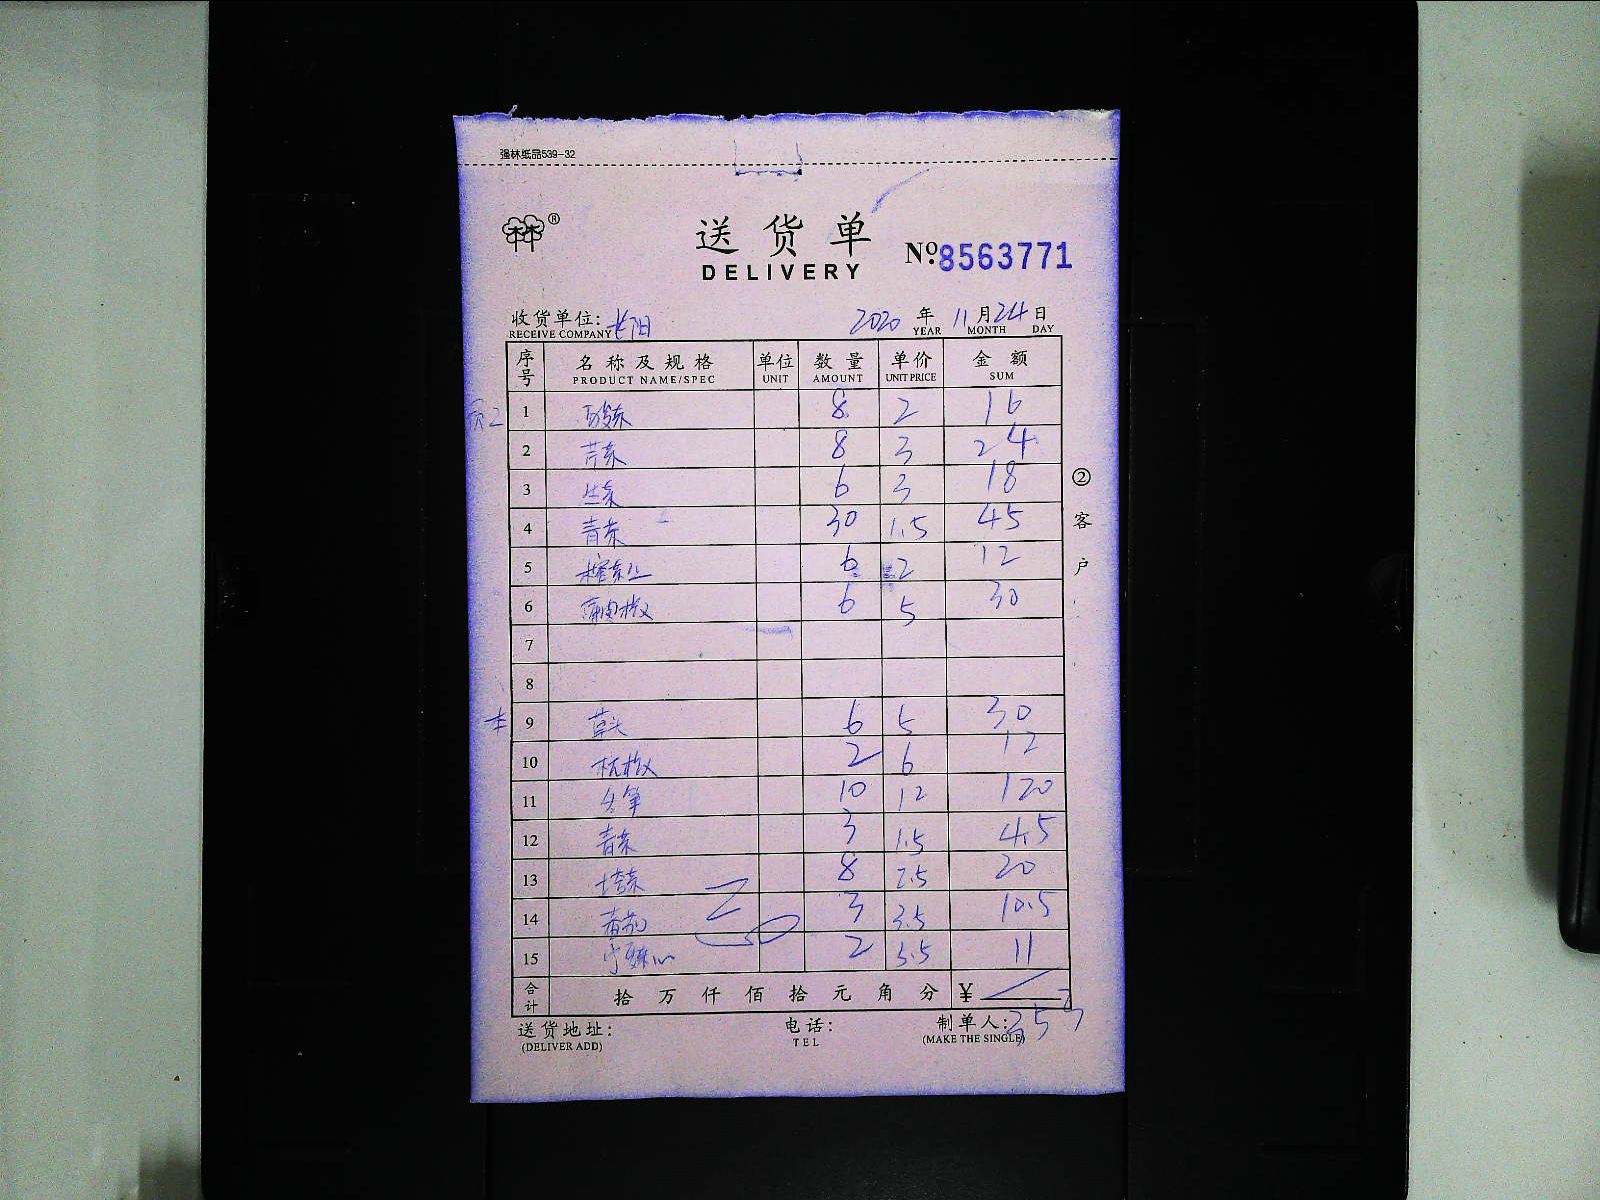 强林纸品539-32
®
送货单
DELIVERY
№ 8563771
收货单位: 长阳 2020 年 11 月 24 日
RECEIVE COMPANY YEAR MONTH DAY
序号 名称及规格 单位 数量 单价 金额
PRODUCT NAME/SPEC UNIT AMOUNT UNIT PRICE SUM
1 8 2 16
2 芹菜 8 3 24
3 生菜 6 3 18
4 青菜 30 1.5 45
5 6 2 12
6 6 5 30
7
8
9 草头 6 5 30
10 杭椒 2 6 12
11 冬笋 10 12 120
12 青菜 3 1.5 4.5
13 塔菜 8 2.5 20
14 3 3.5 10.5
15 2 5.5 11
合计 拾 万 仟 佰 拾 元 角 分 ¥
353
送货地址: 电话: 制单人:
(DELIVER ADD) TEL (MAKE THE SINGLE)
②客户